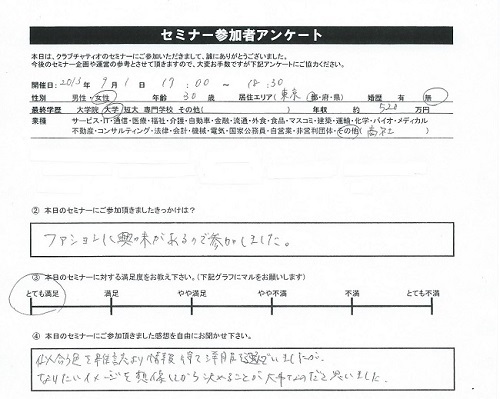 セミナー参加者アンケート
本日は、クラブチャティオのセミナーにご参加いただきまして、誠にありがとうございました。
今後のセミナー企画や運営の参考とさせて頂きますので、大変お手数ですが下記アンケートにご協力ください。
開催日: 2015年 9月 1日 17:00 ～ 18:30
性別 男性・女性 年齢 30歳 居住エリア(東京 都・府・県) 婚歴 有 無
最終学歴 大学院 大学 短大 専門学校 その他( ) 年収 約 520 万円
業種 サービス・IT・通信・医療・福祉・介護・自動車・金融・流通・外食・食品・マスコミ・建築・運輸・化学・バイオ・メディカル
不動産・コンサルティング・法律・会計・機械・電気・国家公務員・自営業・非営利団体・その他( )
② 本日のセミナーにご参加頂きましたきっかけは?
ファションに興味があるので参加しました。
③ 本日のセミナーに対する満足度をお教え下さい。(下記グラフにマルをお願いします)
とても満足 満足 やや満足 やや不満 不満 とても不満
④ 本日のセミナーにご参加頂きました感想を自由にお聞かせ下さい。
似合う色を雑誌より情報を得て洋服を選んでいましたが、
なりたいイメージを想像しながら決めることが大事なのだと思いました。